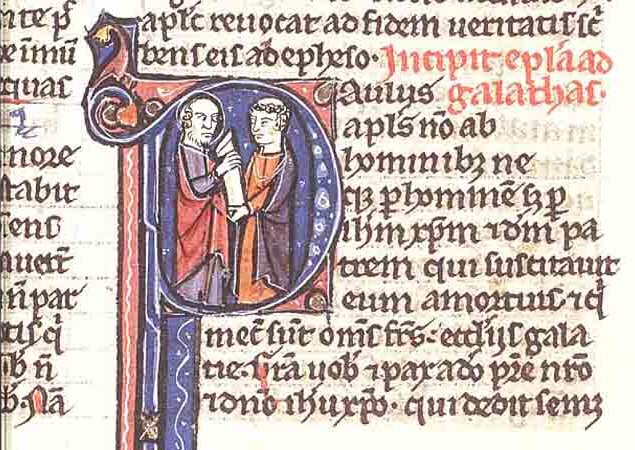 nore
tabit
iens
aplic̄ reuocat ad fidem ueritatis sc̄
bens eis ab epheso. Incipit ep̄la ad
Paulus galathas.
apl̄s nō ab
hominibꝫ ne
qꝫ ꝑ hominē sꝫ ꝑ
ih̄m xp̄m ⁊ dm̄ pa
trem qui suscitauit
eum a mortuis. ⁊ q̄
mec̄ sūt om̄s fr̄s: eccl̄ijs gala
tie. Gr̄a uob̄ ⁊ pax a dō pr̄e nr̄o
⁊ dn̄o ih̄u xp̄o. qui dedit semꝫ